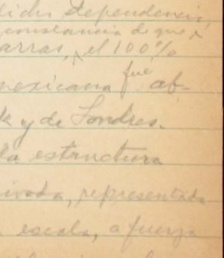 dependencia
constancia d que
arras, el 100%
mexicana fué ab-
k y de Londres.
la estructura
ivada, representada
escala, a fuerza